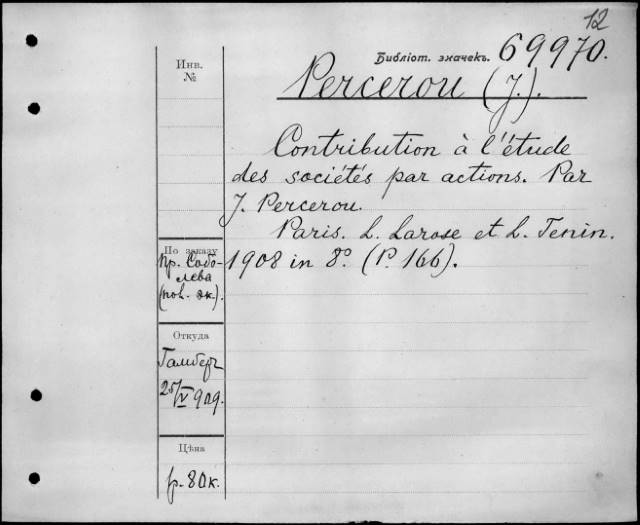 12
Библіот. значекъ. 69970.
Инв.
№
Percerou (J.).
Contribution à l'étude
des sociétés par actions. Par
J. Percerou.
Paris. L. Larose et L. Tenin.
1908 in 8º. (P. 166).
По заказу
пр. Собо-
лева
(нов. эк.).
Откуда
Гамберъ
25/V 909.
Цѣна
р. 80 к.